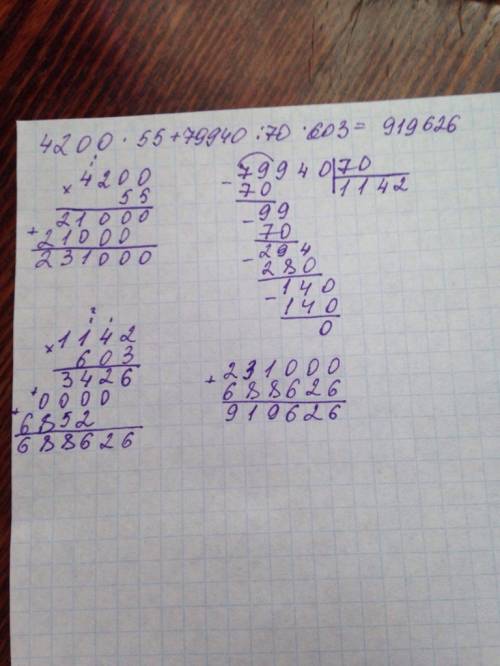 4200 · 55 + 79940 : 70 · 603 = 919626
× 4200
55
21000
+ 21000
231000
- 79940 | 70
70 1142
- 99
70
- 294
280
- 140
140
0
× 1142
603
3426
+ 0000
+ 6852
688626
+ 231000
688626
919626